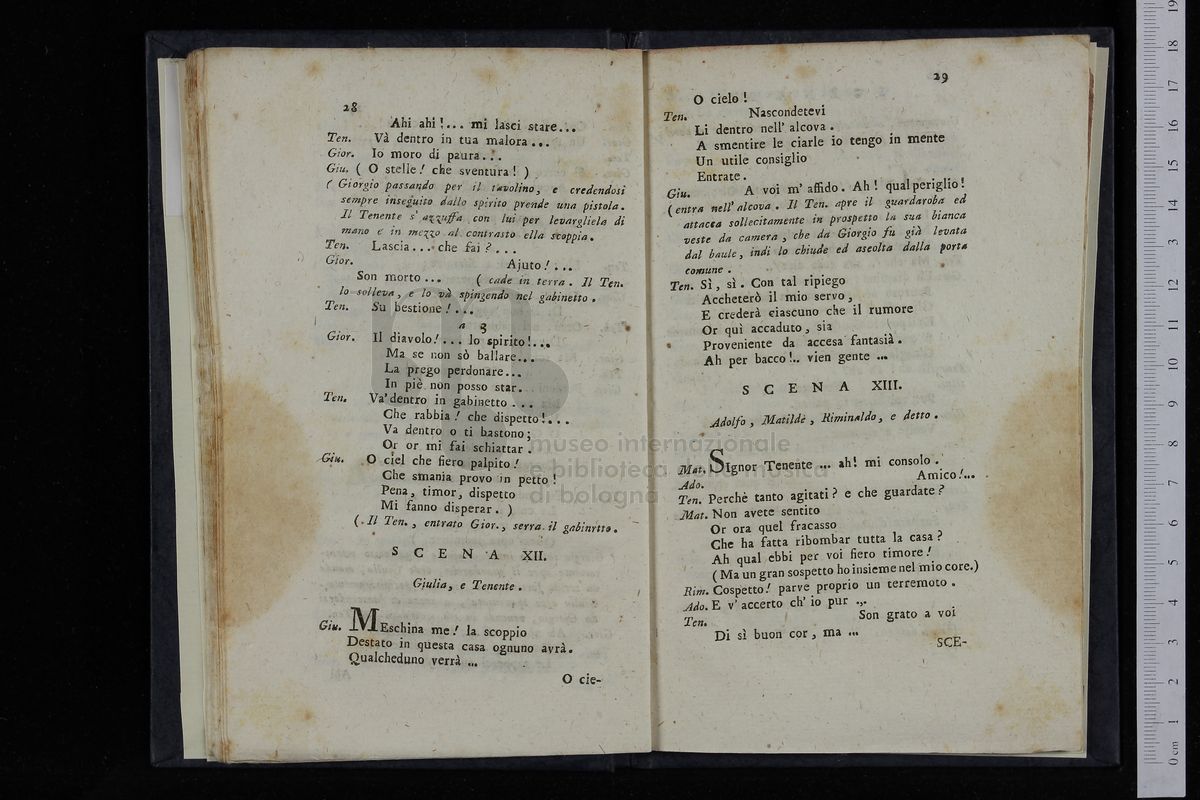 28
Ahi ahi!... mi lasci stare...
Ten. Và dentro in tua malora...
Gior. Io moro di paura...
Giu. ( O stelle! che sventura! )
( Giorgio passando per il tavolino, e credendosi
sempre inseguito dallo spirito prende una pistola.
Il Tenente s' azzuffa con lui per levargliela di
mano e in mezzo al contrasto ella scoppia.
Ten. Lascia... che fai?...
Gior. Ajuto!...
Son morto... ( cade in terra. Il Ten.
lo solleva, e lo và spingendo nel gabinetto.
Ten. Su bestione!...
a 3
Gior. Il diavolo!... lo spirito!...
Ma se non sò ballare...
La prego perdonare...
In piè non posso star.
Ten. Va' dentro in gabinetto...
Che rabbia! che dispetto!...
Va dentro o ti bastono;
Or or mi fai schiattar.
Giu. O ciel che fiero palpito!
Che smania provo in petto!
Pena, timor, dispetto
Mi fanno disperar. )
( Il Ten., entrato Gior., serra il gabinrtto.
SCENA XII.
Giulia, e Tenente.
Giu. MEschina me! la scoppio
Destato in questa casa ognuno avrà.
Qualcheduno verrà...
O cie-
29
O cielo!
Ten. Nascondetevi
Lì dentro nell' alcova.
A smentire le ciarle io tengo in mente
Un utile consiglio
Entrate.
Giu. A voi m' affido. Ah! qual periglio!
(entra nell' alcova. Il Ten. apre il guardaroba ed
attacca sollecitamente in prospetto la sua bianca
veste da camera, che da Giorgio fu già levata
dal baule, indi lo chiude ed ascolta dalla porta
comune.
Ten. Sì, sì. Con tal ripiego
Accheterò il mio servo,
E crederà ciascuno che il rumore
Or quì accaduto, sia
Proveniente da accesa fantasià.
Ah per bacco!.. vien gente...
SCENA XIII.
Adolfo, Matilde, Riminaldo, e detto.
Mat. SIgnor Tenente... ah! mi consolo.
Ado. Amico!...
Ten. Perchè tanto agitati? e che guardate?
Mat. Non avete sentito
Or ora quel fracasso
Che ha fatta ribombar tutta la casa?
Ah qual ebbi per voi fiero timore!
( Ma un gran sospetto ho insieme nel mio core.)
Rim. Cospetto! parve proprio un terremoto.
Ado. E v' accerto ch' io pur...
Ten. Son grato a voi
Di sì buon cor, ma...
SCE-
museo internazionale
e biblioteca della musica
di bologna
0 cm 1 2 3 4 5 6 7 8 9 10 11 12 13 14 15 16 17 18 19